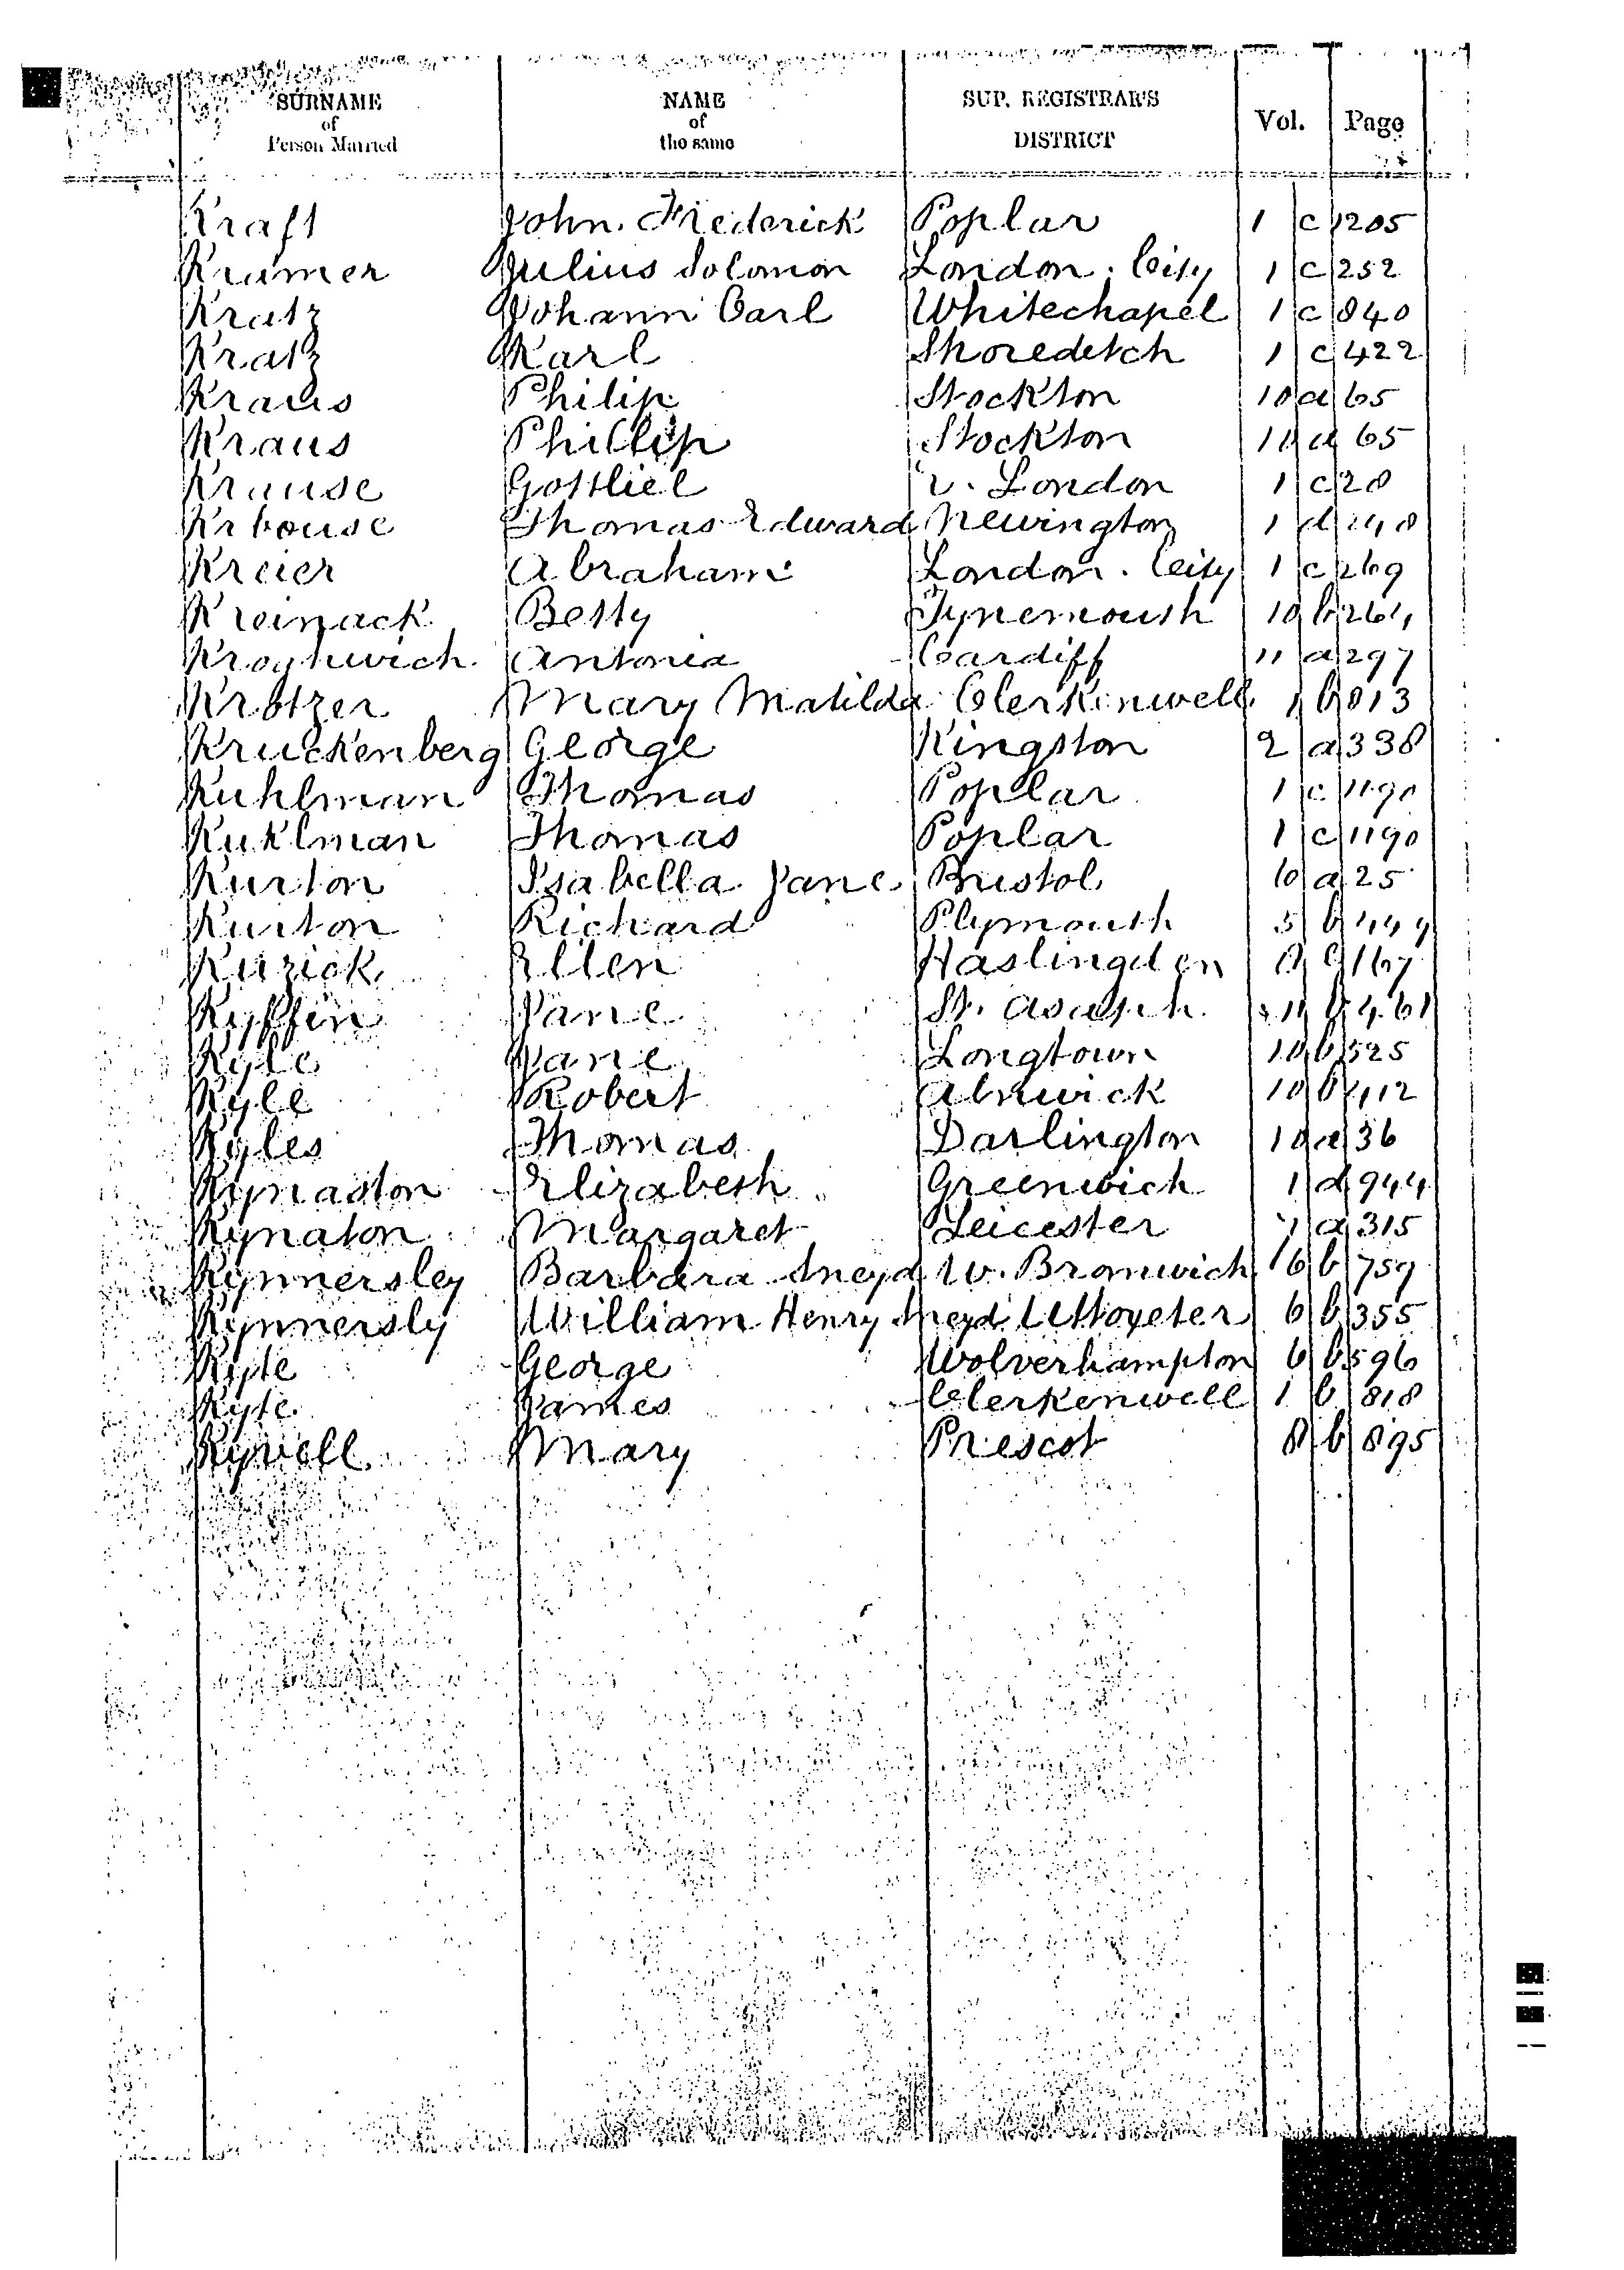 SURNAME of Person Married NAME of the same SUP. REGISTRAR'S DISTRICT Vol. Page
Kraft John. Frederick Poplar 1 c 1205
Kramer Julius Solomon London. City 1 c 252
Kratz Johann Carl Whitechapel 1 c 840
Kratz Karl Shoreditch 1 c 422
Kraus Philip Stockton 10 a 65
Kraus Phillip Stockton 10 a 65
Krause Gottlieb London 1 c 28
Krbouse Thomas Edward Newington 1 d
Kreier Abraham London. City 1 c 269
Kreinack Betty Tynemouth 10 b
Kroghwich Antonia Cardiff 11 a 297
Krotzer Mary Matilda Clerkenwell 1 b 813
Kruckenberg George Kingston 2 a 338
Kuhlman Thomas Poplar 1 c 1190
Kuklman Thomas Poplar 1 c 1190
Kurton Isabella Jane Bristol 6 a 25
Kurton Richard Plymouth 5 b
Kuzick Ellen Haslingden 8 e 167
Kyffin Jane St. Asaph. 11 b 461
Kyle Jane Longtown 10 b 525
Kyle Robert Alnwick 10 b 412
Kyles Thomas Darlington 10 a 36
Kynaston Elizabeth Greenwich 1 d 944
Kynaton Margaret Leicester 7 a 315
Kynnersley Barbara Sneyd W. Bromwich 6 b 759
Kynnersly William Henry Sneyd Uttoxeter 6 b 355
Kyte George Wolverhampton 6 b 596
Kyte James Clerkenwell 1 b 818
Kyvell Mary Prescot 8 b 895